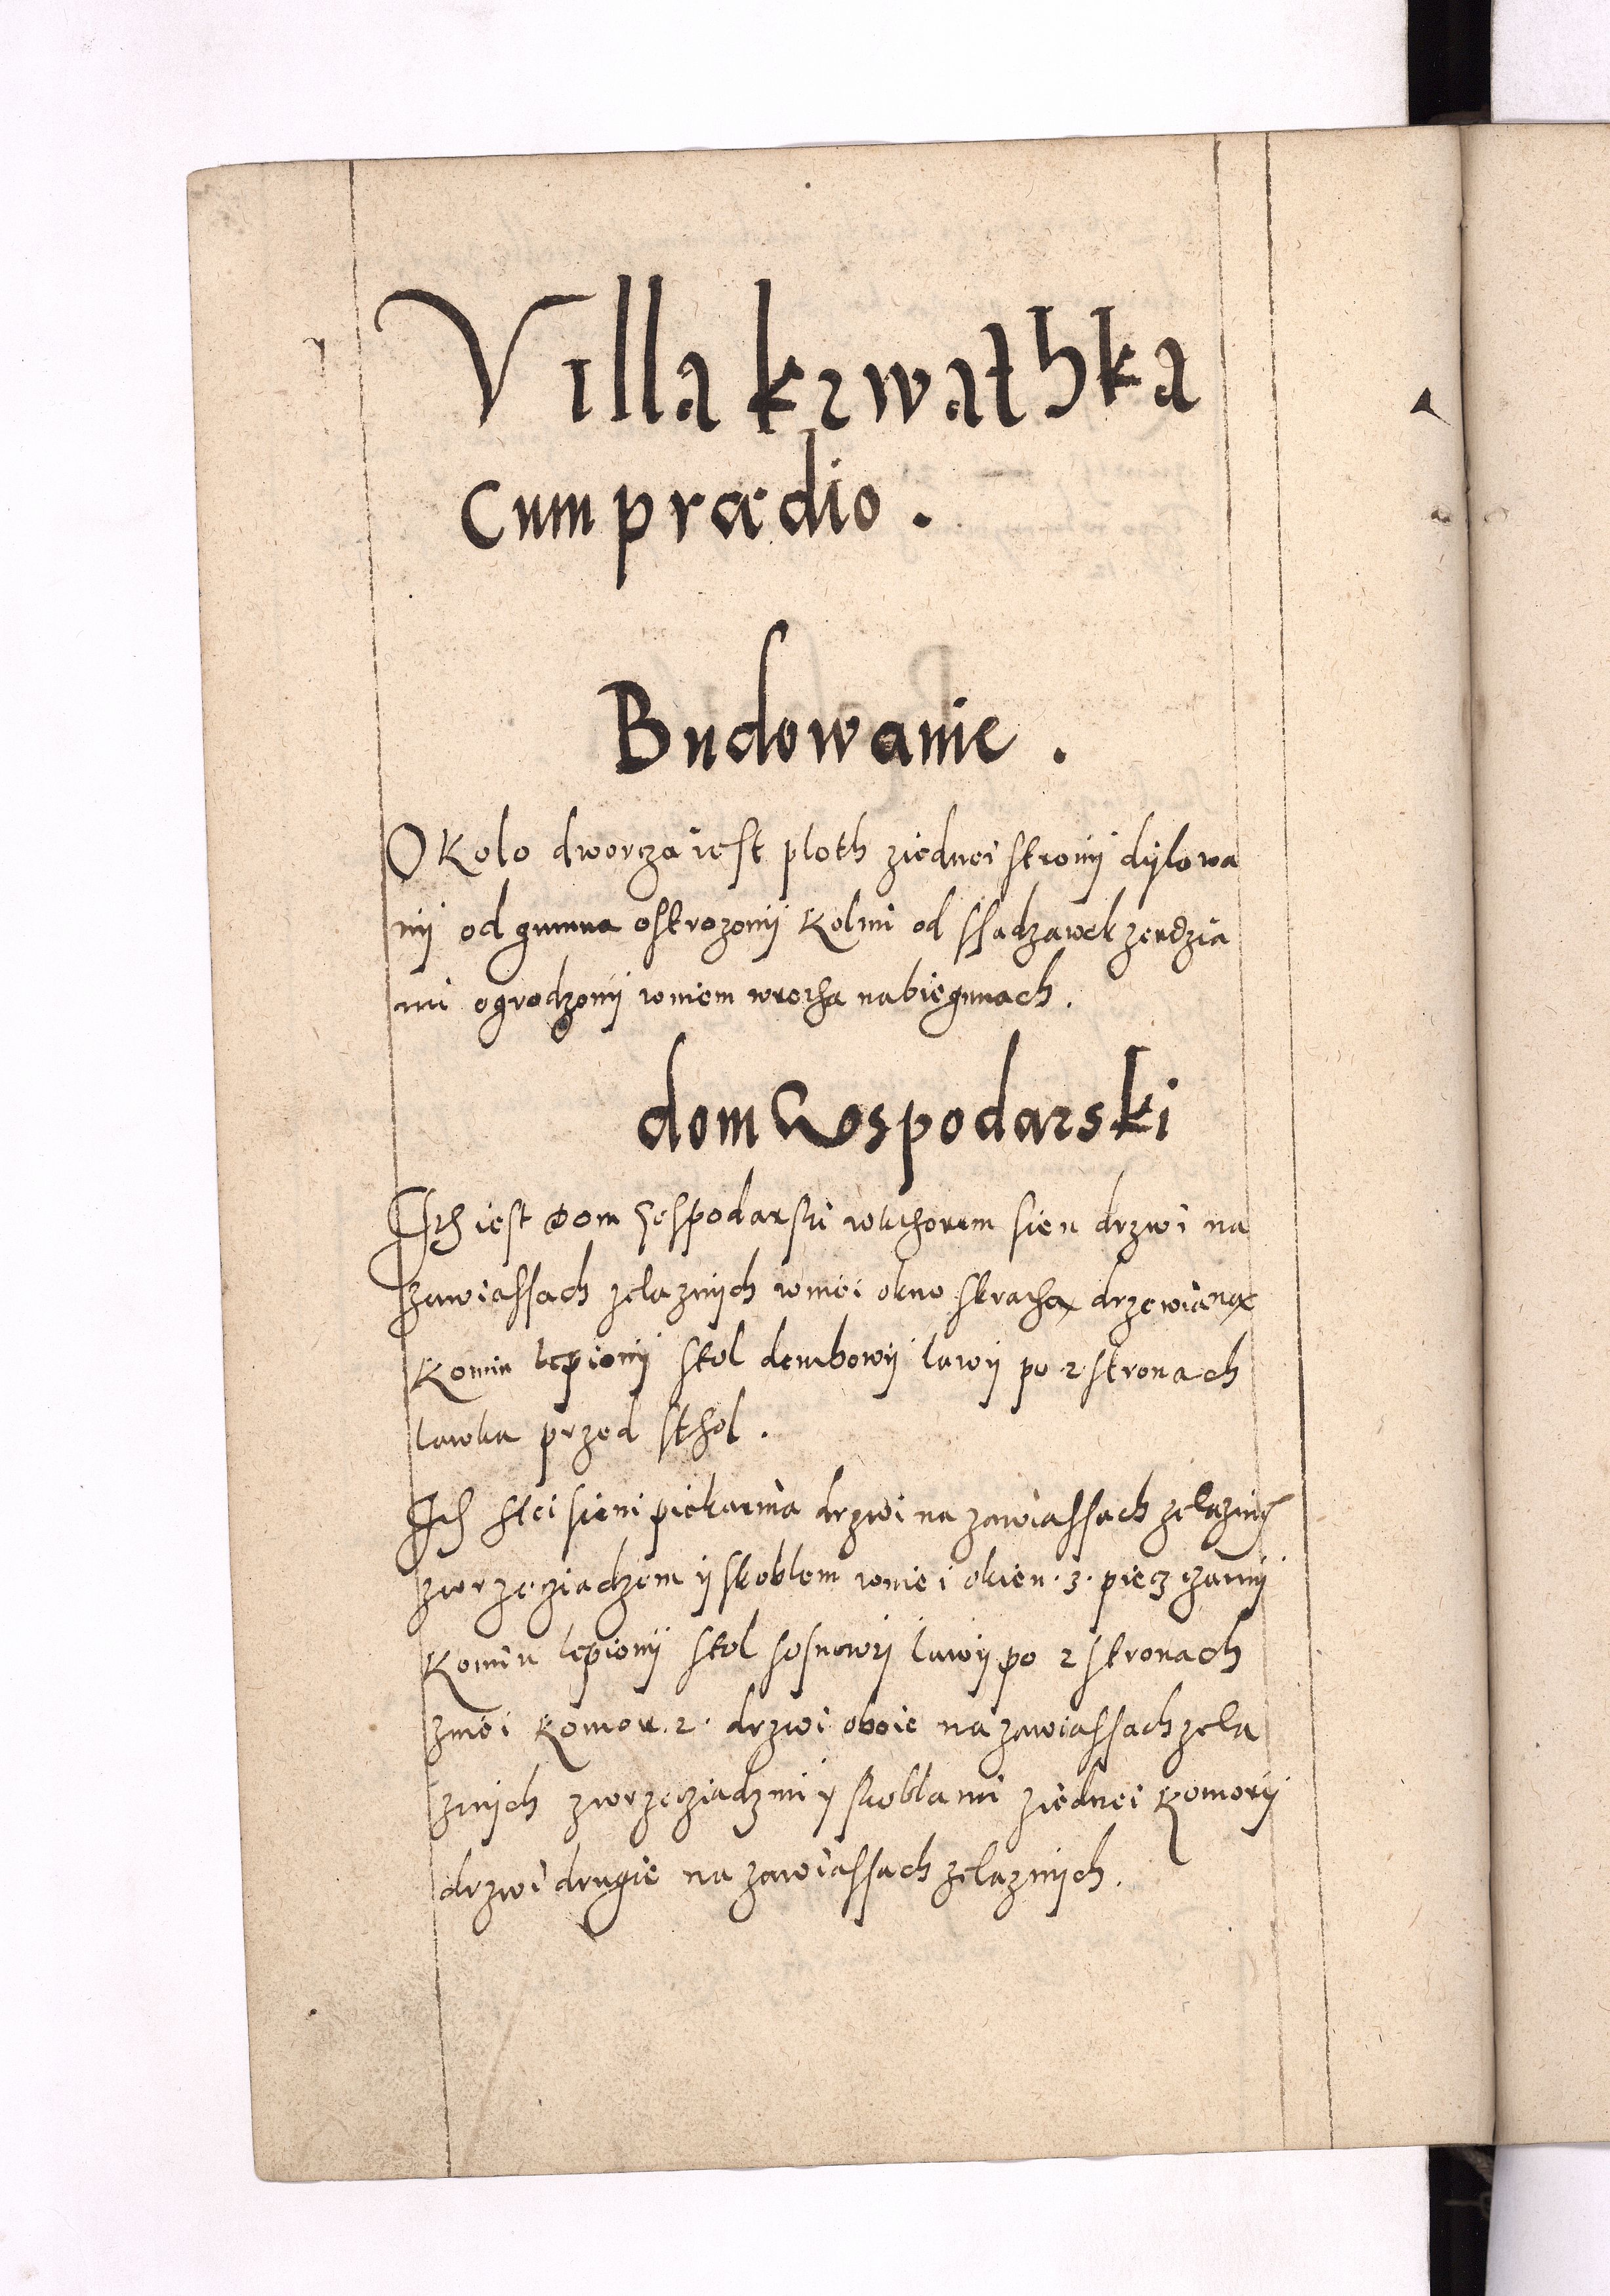 Villa krwathka
cum prædio.
Budowanie.
Okolo dworcza iest ploth ziednei strony dylowa
ny od gumna ostrozony kolmi od ssadzawek zerdzia
mi ogrodzony wniem wrotha nabiegunach.
dom Gospodarski
Ith iest dom Gospodarski wktorem sien drzwi na
zawiassach zelaznych wniei okno skratha drzewiana
Komin lepiony stol dembowy lawy po 2 stronach
lawka przed sthol.
Ith stei sieni piekarnia drzwi na zawiassach zelaznych
zwrzecziadzem y skoblem wniei okien .3. piecz czarny
Komin lepiony stol sosnowy lawy po 2 stronach
zniei komor .2. drzwi oboie na zawiassach zela
znych zwrzecziadzmi y skoblami ziednei komory
drzwi drugie na zawiassach zelaznych.